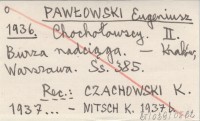 o PAWŁOWSKI Eugeniusz
1936. Chochołowscy. II.
Burza nadciąga. — Kraków,
Warszawa. Ss. 385.
Rec.: CZACHOWSKI K.
1937... — NITSCH K. 1937b.